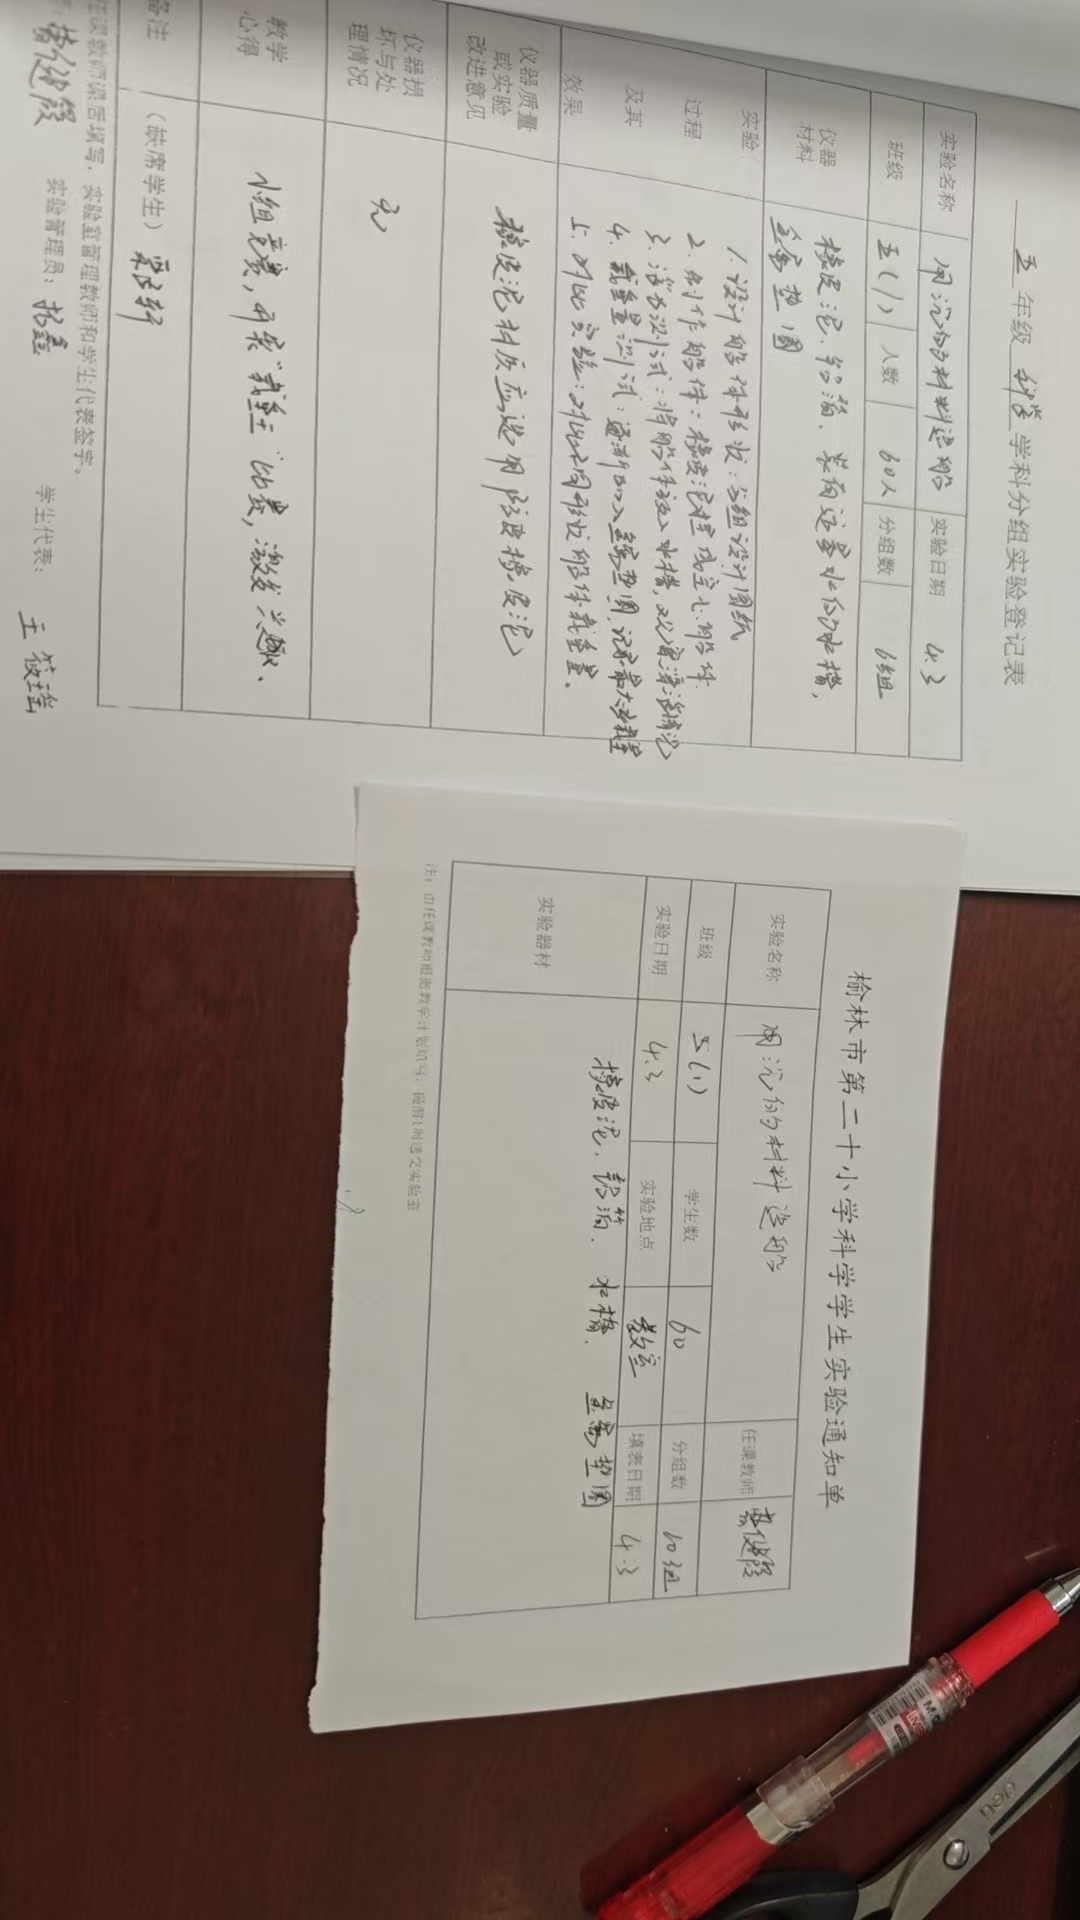 五年级 科学 学科分组实验登记表
实验名称 用沉的材料造船 实验日期 4.3
班级 五(1) 人数 60人 分组数 6组
仪器材料 橡皮泥、铝箔、装有适量水的水槽,
金属垫圈
实验过程及其效果 1.设计船体形状:分组设计图纸
2.制作船体:橡皮泥捏成空心船体
3.浮力测试:将船体放入水槽,观察漂浮情况
4.载重量测试:逐渐加入金属垫圈,记录最大承载量
5.对比实验:对比不同形状船体载重量。
仪器质量或实验改进意见 橡皮泥材质应选用防水橡皮泥
仪器损坏与处理情况 无
教学心得 小组竞赛,开展“载重王”比赛,激发兴趣、
备注 (缺席学生)
任课教师课后填写,实验室管理教师和学生代表签字。
实验管理员: 学生代表: 王筱瑶
榆林市第二十小学科学学生实验通知单
实验名称 用沉的材料造船 任课教师
班级 5(1) 学生数 60 分组数 10组
实验日期 4.3 实验地点 教室 填表日期 4.3
实验器材 橡皮泥、铝箔、水槽、金属垫圈
注:由任课教师根据教学计划填写,提前1周送交实验室
deli